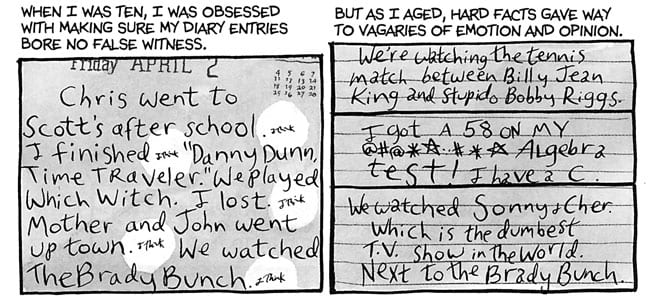 WHEN I WAS TEN, I WAS OBSESSED
WITH MAKING SURE MY DIARY ENTRIES
BORE NO FALSE WITNESS.
Friday APRIL 2
Chris went to
Scott's after school. I think
I finished I think "Danny Dunn,
Time TRaveler." We played
Which Witch. I lost. I think
Mother and John went
up town. I think We watched
The Brady Bunch. I think
BUT AS I AGED, HARD FACTS GAVE WAY
TO VAGARIES OF EMOTION AND OPINION.
We're watching the tennis
match between Billy Jean
King and stupido Bobby Riggs.
I got A 58 ON MY
@#@*☆.#*☆ Algebra
test! I have a C.
We watched Sonny & Cher.
Which is the dumbest
T.V. Show in the World.
Next to the Brady Bunch.